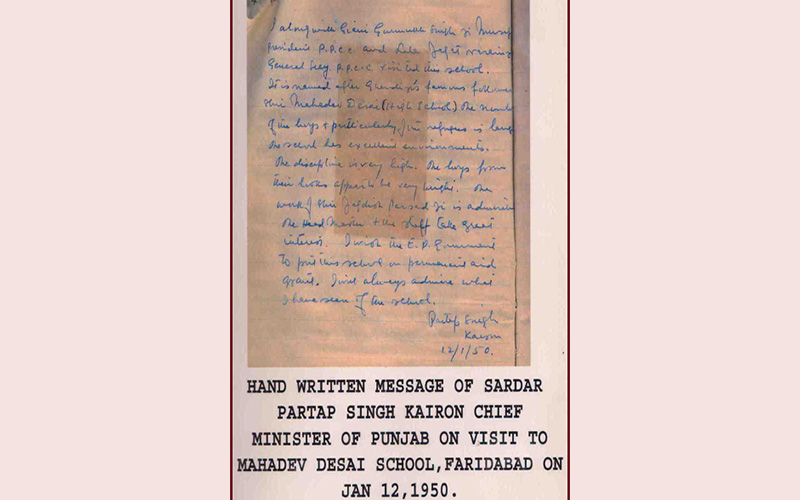 I along with Giani Gurmukh Singh Ji Musafir
President P.P.C.C. and Lala Jagat Narain
General Secy. P.P.C.C. visited this school.
It is named after Gandhiji's famous follower
Shri Mahadev Desai (High School) The number
of the boys & particularly, from refugees is large
The school has excellent environments.
The discipline is very high. The boys from
their looks appear to be very bright. The
work of Shri Jagdish Persad Ji is admirable
The Head Master & the staff take great
interest. I wish the E.P. Government
to put this school on permanent aid
grant. I will always admire what
I have seen of the school.
Partap Singh
Kairon
12/1/50.
HAND WRITTEN MESSAGE OF SARDAR
PARTAP SINGH KAIRON CHIEF
MINISTER OF PUNJAB ON VISIT TO
MAHADEV DESAI SCHOOL,FARIDABAD ON
JAN 12,1950.